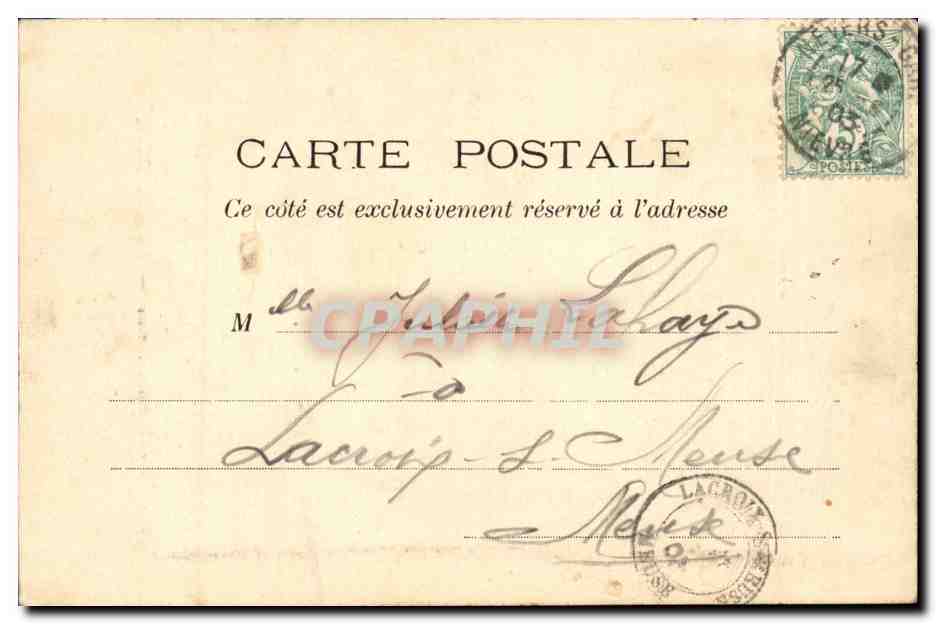 NEVERS GARE
17
25
03
NIEVRE
5
POSTES
CARTE POSTALE
Ce côté est exclusivement réservé à l'adresse
M lle Julien Lahaye
à
Lacroix-s-Meuse
Meuse
LACROIX S MEUSE
MEUSE
CPAPHIL